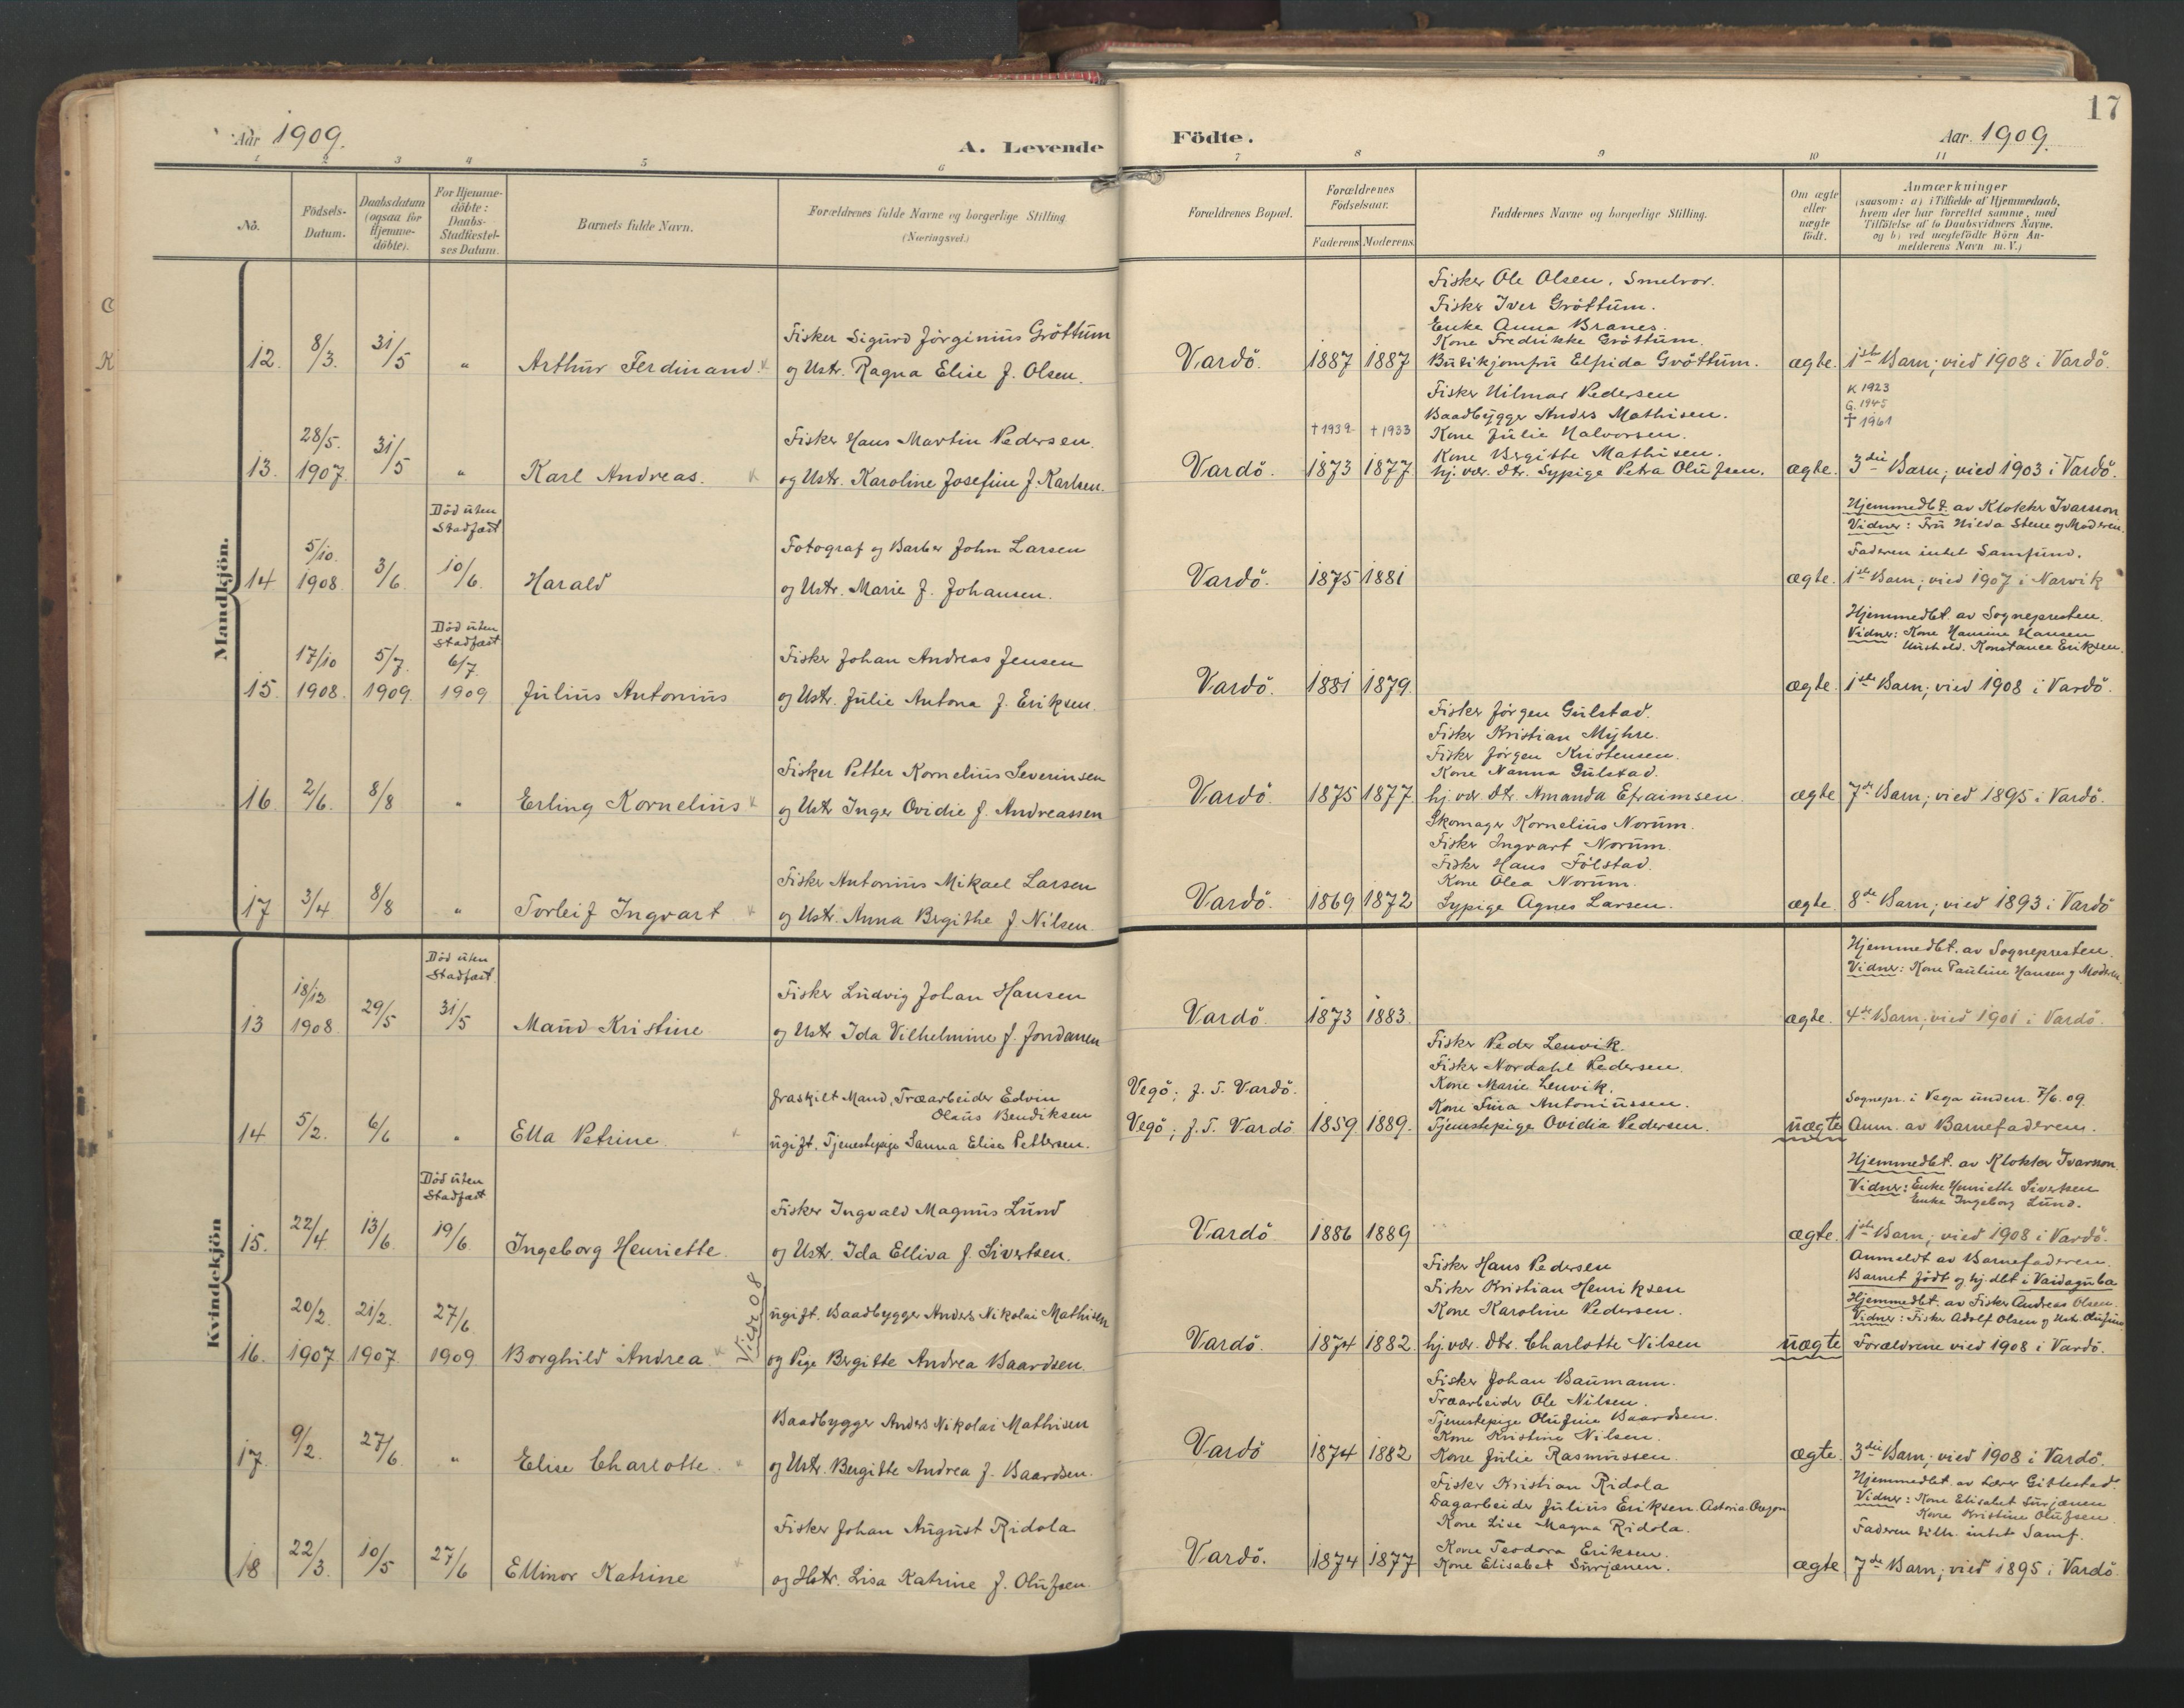 17
Aar 1909.
A. Levende
Födte.
Aar. 1909.
1 2 3 4 5 6 7 8 9 10 11
No.
Födsels-
Datum.
Daabsdatum
(ogsaa for
Hjemme-
döbte).
For Hjemme-
döbte:
Daabs-
Stadfæstel-
ses Datum.
Barnets fulde Navn.
Forældrenes fulde Navne og borgerlige Stilling
(Næringsvei.)
Forældrenes Bopæl.
Forældrenes
Födselsaar.
Faderens Moderens
Faddernes Navne og borgerlige Stilling.
Om ægte
eller
uægte
födt.
Anmærkninger
(saasom: a) i Tilfælde af Hjemmedaab,
hvem der har forrettet samme, med
Tilföielse af to Daabsvidners Navne.
og b) ved uægtefödte Börn An-
melderens Navn m. V.)
Mandkjön.
12. 8/3. 31/5 " Arthur Ferdinand.
Fisker Sigurd Jörginius Gröttum
og Ustr. Ragna Elise f. Olsen.
Vardö. 1887 1887
Fisker Ole Olsen, Smelror.
Fisker Iver Gröttum.
Enke Anna Branes.
Kone Fredrikke Gröttum.
Butikjomfru Elfrida Gröttum.
ægte. 1ste Barn; vied 1908 i Vardö.
13. 28/5. 1907 31/5 " Karl Andreas.
Fisker Hans Martin Pedersen
og Ustr. Karoline Josefine f. Karlsen.
Vardö. †1939 1873 †1933 1877
Fisker Hilmar Pedersen
Baadbygger Anders Mathisen.
Kone Julie Halvorsen.
Kone Bergitte Mathisen.
hj. vær. dtr. Sypige Petra Olufsen.
ægte.
K 1923
G. 1945
† 1961
3die Barn; vied 1903 i Vardö.
14 5/10. 1908 3/6.
Död uten
Stadfæst
10/6.
Harald
Fotograf og Barber John Larsen
og Ustr. Marie f. Johansen.
Vardö. 1875 1881
ægte.
Hjemmedbt. av Klokker Ivarsson
Vidner: Fru Hilda Stene og Moderen.
Faderen intet Samfund.
1ste Barn; vied 1907 i Narvik
15. 17/10 1908. 5/7. 1909.
Död uten
Stadfæst
6/7. 1909
Julius Antonius
Fisker Johan Andreas Jensen
og Ustr. Julie Antona f. Eriksen.
Vardö. 1881 1879.
ægte.
Hjemmedbt. av Sognepresten.
Vidner: Kone Hansine Hansen
Hushold. Konstance Eriksen.
1ste Barn; vied 1908 i Vardö.
16 2/6. 8/8 " Erling Kornelius
Fisker Petter Kornelius Severinsen
og Ustr Inger Ovidie f. Andreassen
Vardö. 1875 1877
Fisker Jörgen Gulstad.
Fisker Kristian Myhre.
Fisker Jörgen Kristensen.
Kone Nanna Gulstad.
hj. vær. dtr. Amanda Efraimsen.
ægte 7de Barn; vied 1895 i Vardö.
17 3/4 8/8 " Torleif Ingvart
Fisker Antonius Mikael Larsen
og Ustr. Anna Brgithe f. Nilsen.
Vardö. 1869 1872
Skomager Kornelius Norum.
Fisker Ingvart Norum.
Fisker Hans Fölstad.
Kone Olea Norum.
Sypige Agnes Larsen.
ægte. 8de Barn; vied 1893 i Vardö
Kvindekjön
13 18/12 1908. 29/5
Död uten
Stadfæst.
31/5
Maud Kristine
Fisker Ludvig Johan Hansen
og Ustr Ida Vilhelmine f. Jordanen
Vardö. 1873 1883.
ægte.
Hjemmedbt. av Sognepresten.
Vidner: Kone Pauline Hansen og Moderen.
4de Barn; vied 1901 i Vardö.
14 5/2. 6/6 " Ella Petrine
fraskilt Mand, Træarbeider Edvin
Olaus Bendiksen
ugift. Tjenestepige Sanna Elise Pettersen.
Vegö; f. T. Vardö.
Vegö; f. T. Vardö 1859 1889.
Fisker Peder Lenvik.
Fisker Nordahl Pedersen.
Kone Marie Lenvik.
Kone Tina Antoniussen.
Tjenestepige Ovidia Pedersen.
uægte
Sognepr. i Vega underr. 7/6. 09.
Anm. av Barnefaderen.
15. 22/4 13/6.
Död uten
Stadfæst
19/6.
Ingeborg Henriette.
Fisker Ingvald Magnus Lund
og Ustr. Ida Elliva f. Sivertsen.
Vardö 1886 1889
ægte.
Hjemmedbt. av Klokker Ivarsson.
Vidner: Enke Henriette Sivertsen
Enke Ingeborg Lund.
1ste Barn; vied 1908 i Vardö.
16. 20/2. 1907 21/2. 1907 27/6 1909 Borghild Andrea.
Viede 08
ugift. Baadbygger Anders Nikolai Mathisen
og Pige Brgitte Andrea Baardsen.
Vardö. 1874 1882.
Fisker Hans Pedersen
Fisker Kristian Henriksen
Kone Karoline Pedersen.
hj. vær. dtr. Charlotte Nilsen
uægte
Anmeldt av Barnefaderen.
Barnet födt og hj. dbt i Vaidaguba
Hjemmedbt. av Fisker Andreas Olsen.
Vidner: Fisker Adolf Olsen og Ustr. Olufine
Forældrene vied 1908 i Vardö.
17. 9/2. 27/6. " Elise Charlotte.
Baadbygger Anders Nikolai Mathisen
og Ustr. Bergitte Andrea f. Baardsen.
Vardö 1874 1882
Fisker Johan Baumann.
Træarbeider Ole Nilsen.
Tjenestepige Olufine Baardsen.
Kone Kristine Nilsen.
Kone Julie Rasmussen.
ægte. 3die Barn; vied 1908 i Vardö.
18 22/3. 10/5 27/6 Ellinor Katrine
Fisker Johan August Ridola
og Hstr. Lisa Katrine f. Olufsen.
Vardö. 1874 1877
Fisker Kristian Ridola
Dagarbeider Julius Eriksen. Astoria. Oregon
Kone Lise Magna Ridola.
Kone Teodora Eriksen.
Kone Elisabet Surjænen.
ægte
Hjemmedbt. av Lærer Gittlestad.
Vidner: Kone Elisabet Surjænen
Kone Kristine Olufsen.
Faderen tilh. intet Samf.
7de Barn; vied 1895 i Vardö